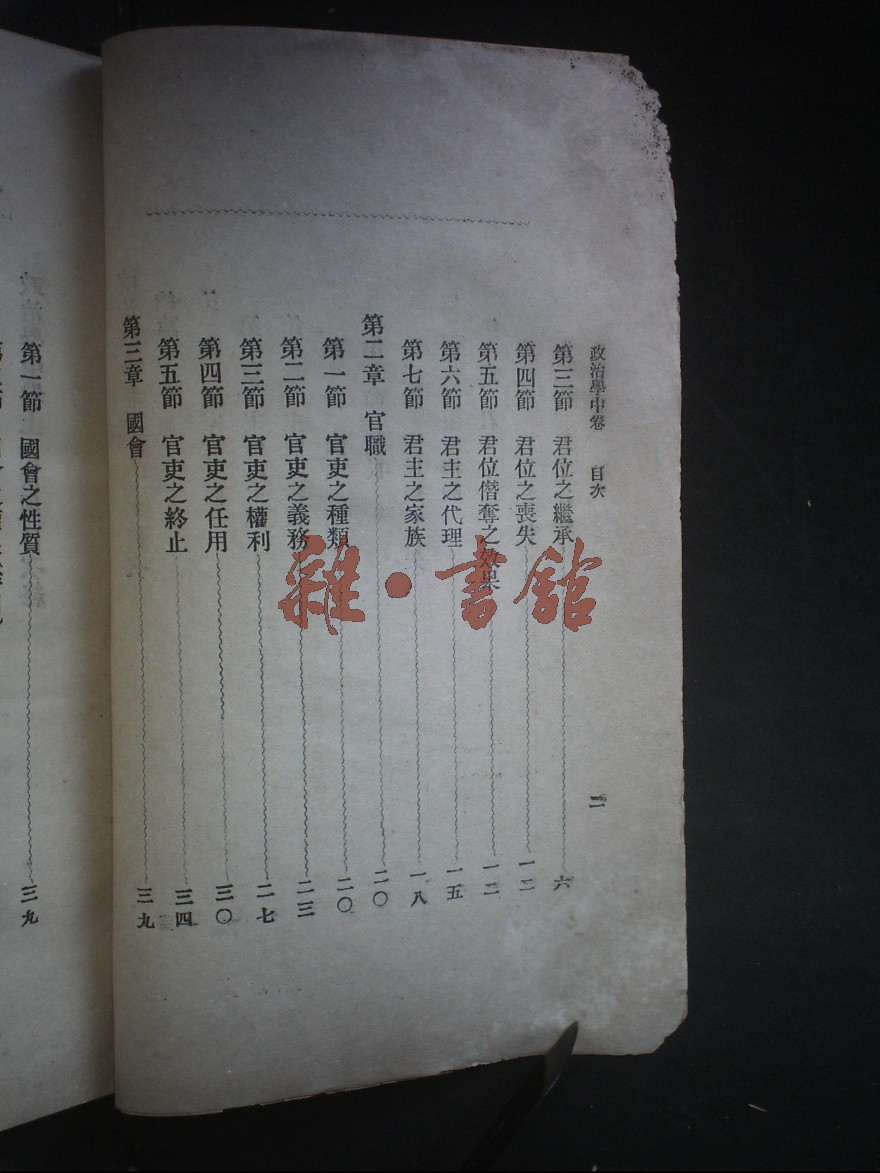 政治學中卷 目次 二
第三節 君位之繼承 六
第四節 君位之喪失 一二
第五節 君位僭奪之效果 一二
第六節 君主之代理 一五
第七節 君主之家族 一八
第二章 官職 二〇
第一節 官吏之種類 二〇
第二節 官吏之義務 二三
第三節 官吏之權利 二七
第四節 官吏之任用 三〇
第五節 官吏之終止 三四
第三章 國會 三九
第一節 國會之性質 三九
雜·書館